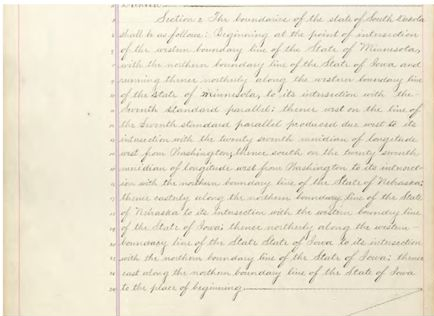 Section 2 The boundaries of the state of South Dakota
shall be as follows: Beginning at the point of intersection
of the western boundary line of the State of Minnesota,
with the northern boundary line of the State of Iowa and
running thence northerly along the western boundary line
of the State of Minnesota, to its intersection with the
Seventh standard parallel; thence west on the line of
the Seventh standard parallel produced due west to its
intersection with the twenty seventh meridian of longitude
west from Washington, thence south on the twenty seventh
meridian of longitude west from Washington to its intersect-
ion with the northern boundary line of the State of Nebraska;
thence easterly along the northern boundary line of the State
of Nebraska to its intersection with the western boundry line
of the State of Iowa; thence northerly along the western
boundary line of the State State of Iowa to its intersection
with the northern boundary line of the State of Iowa; thence
east along the northern boundary line of the State of Iowa
to the place of beginning